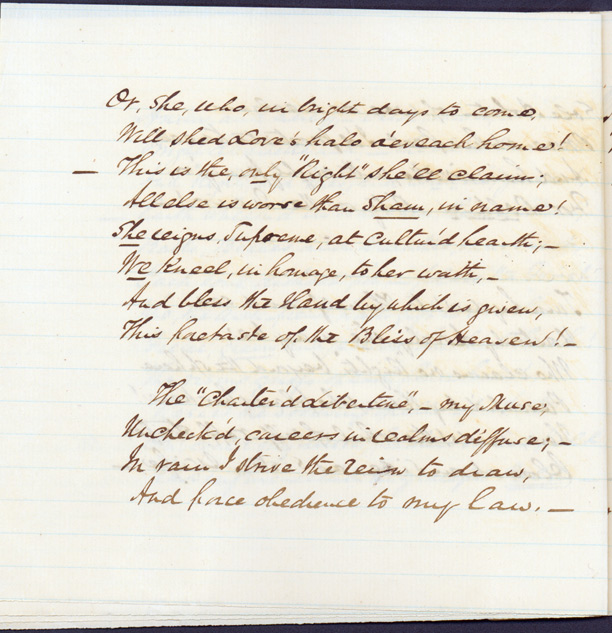 Or, she, who, in bright days to come,
Will shed Love's halo o'er each home!
— This is the, only "Right" she'll claim;
All else is worse than Sham, in name!
She reigns, Supreme, at Cultur'd hearth; —
We Kneel, in homage, to her worth, —
And bless the Hand by which is given,
This foretaste of the Bliss of Heaven! —
The "Charter'd Libertine", — my Muse,
Uncheck'd, careers in realms diffuse; —
In vain I strive the rein to draw,
And force obedience to my law. —